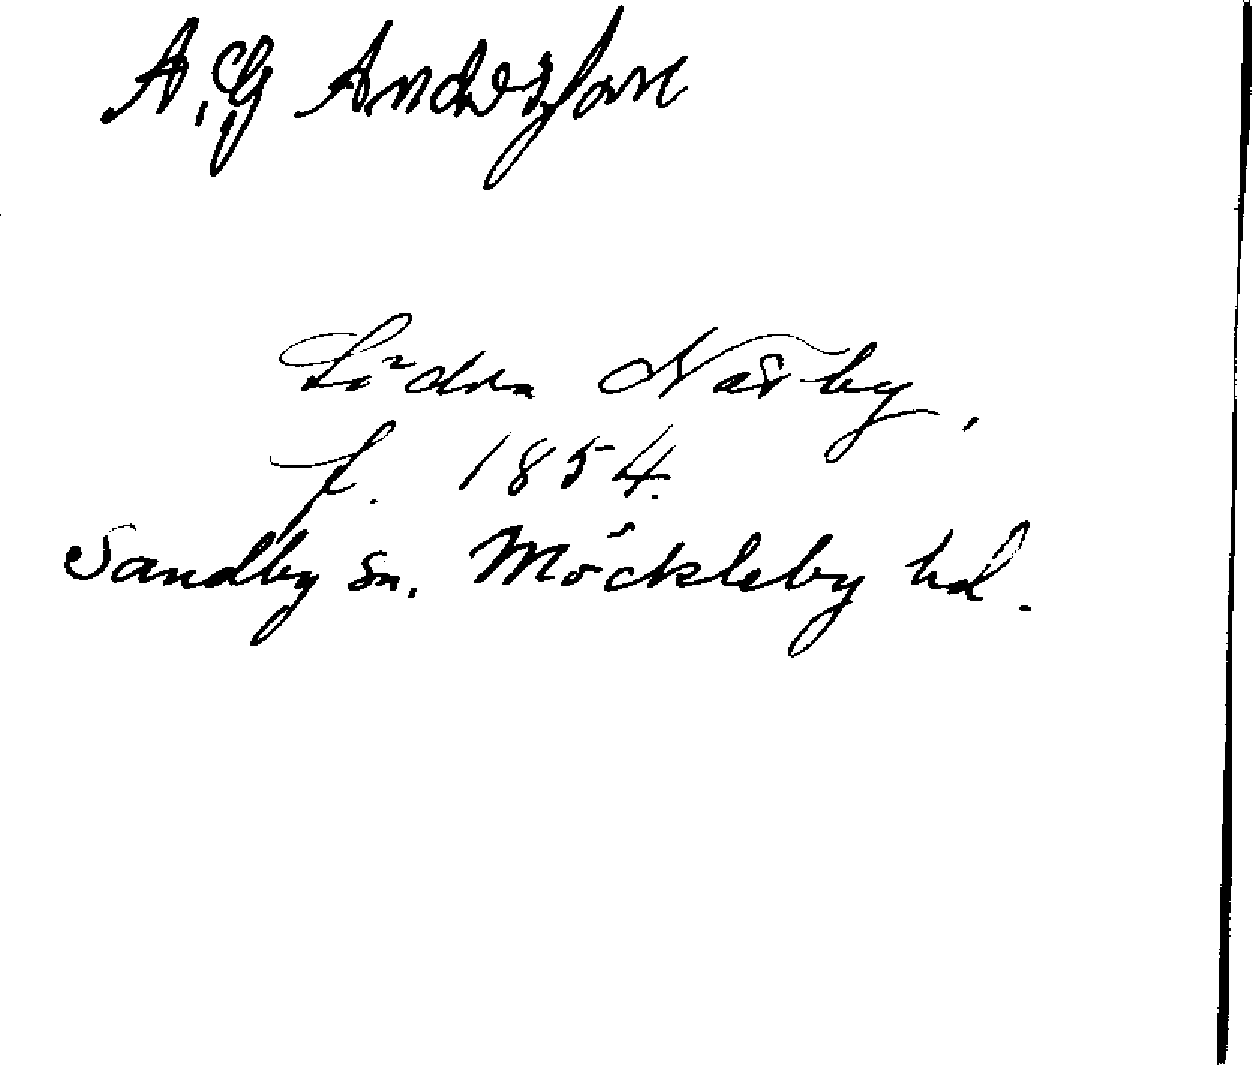 A. G Andersson
Södra Näsby,
f. 1854.
Sandby sn. Möckleby hd.